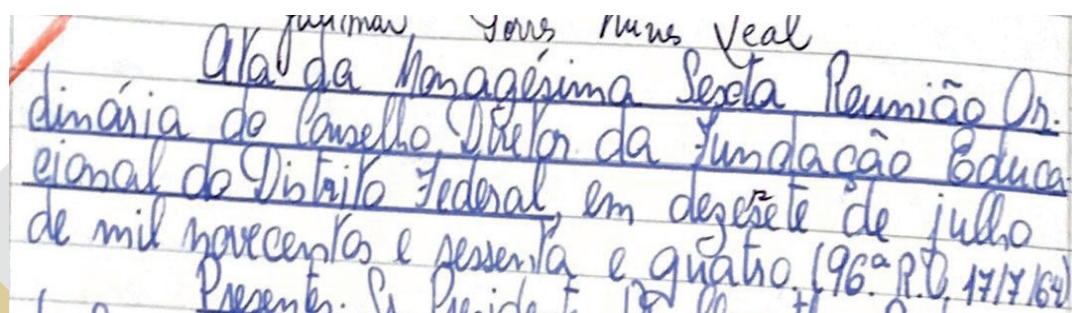 Nunes Leal
Ata da Nonagésima Sexta Reunião Or-
dinária do Conselho Diretor da Fundação Educa
cional do Distrito Federal, em dezesete de julho
de mil novecentos e sessenta e quatro. (96ª R.O. 17/7/64)
Presentes: Sr. President